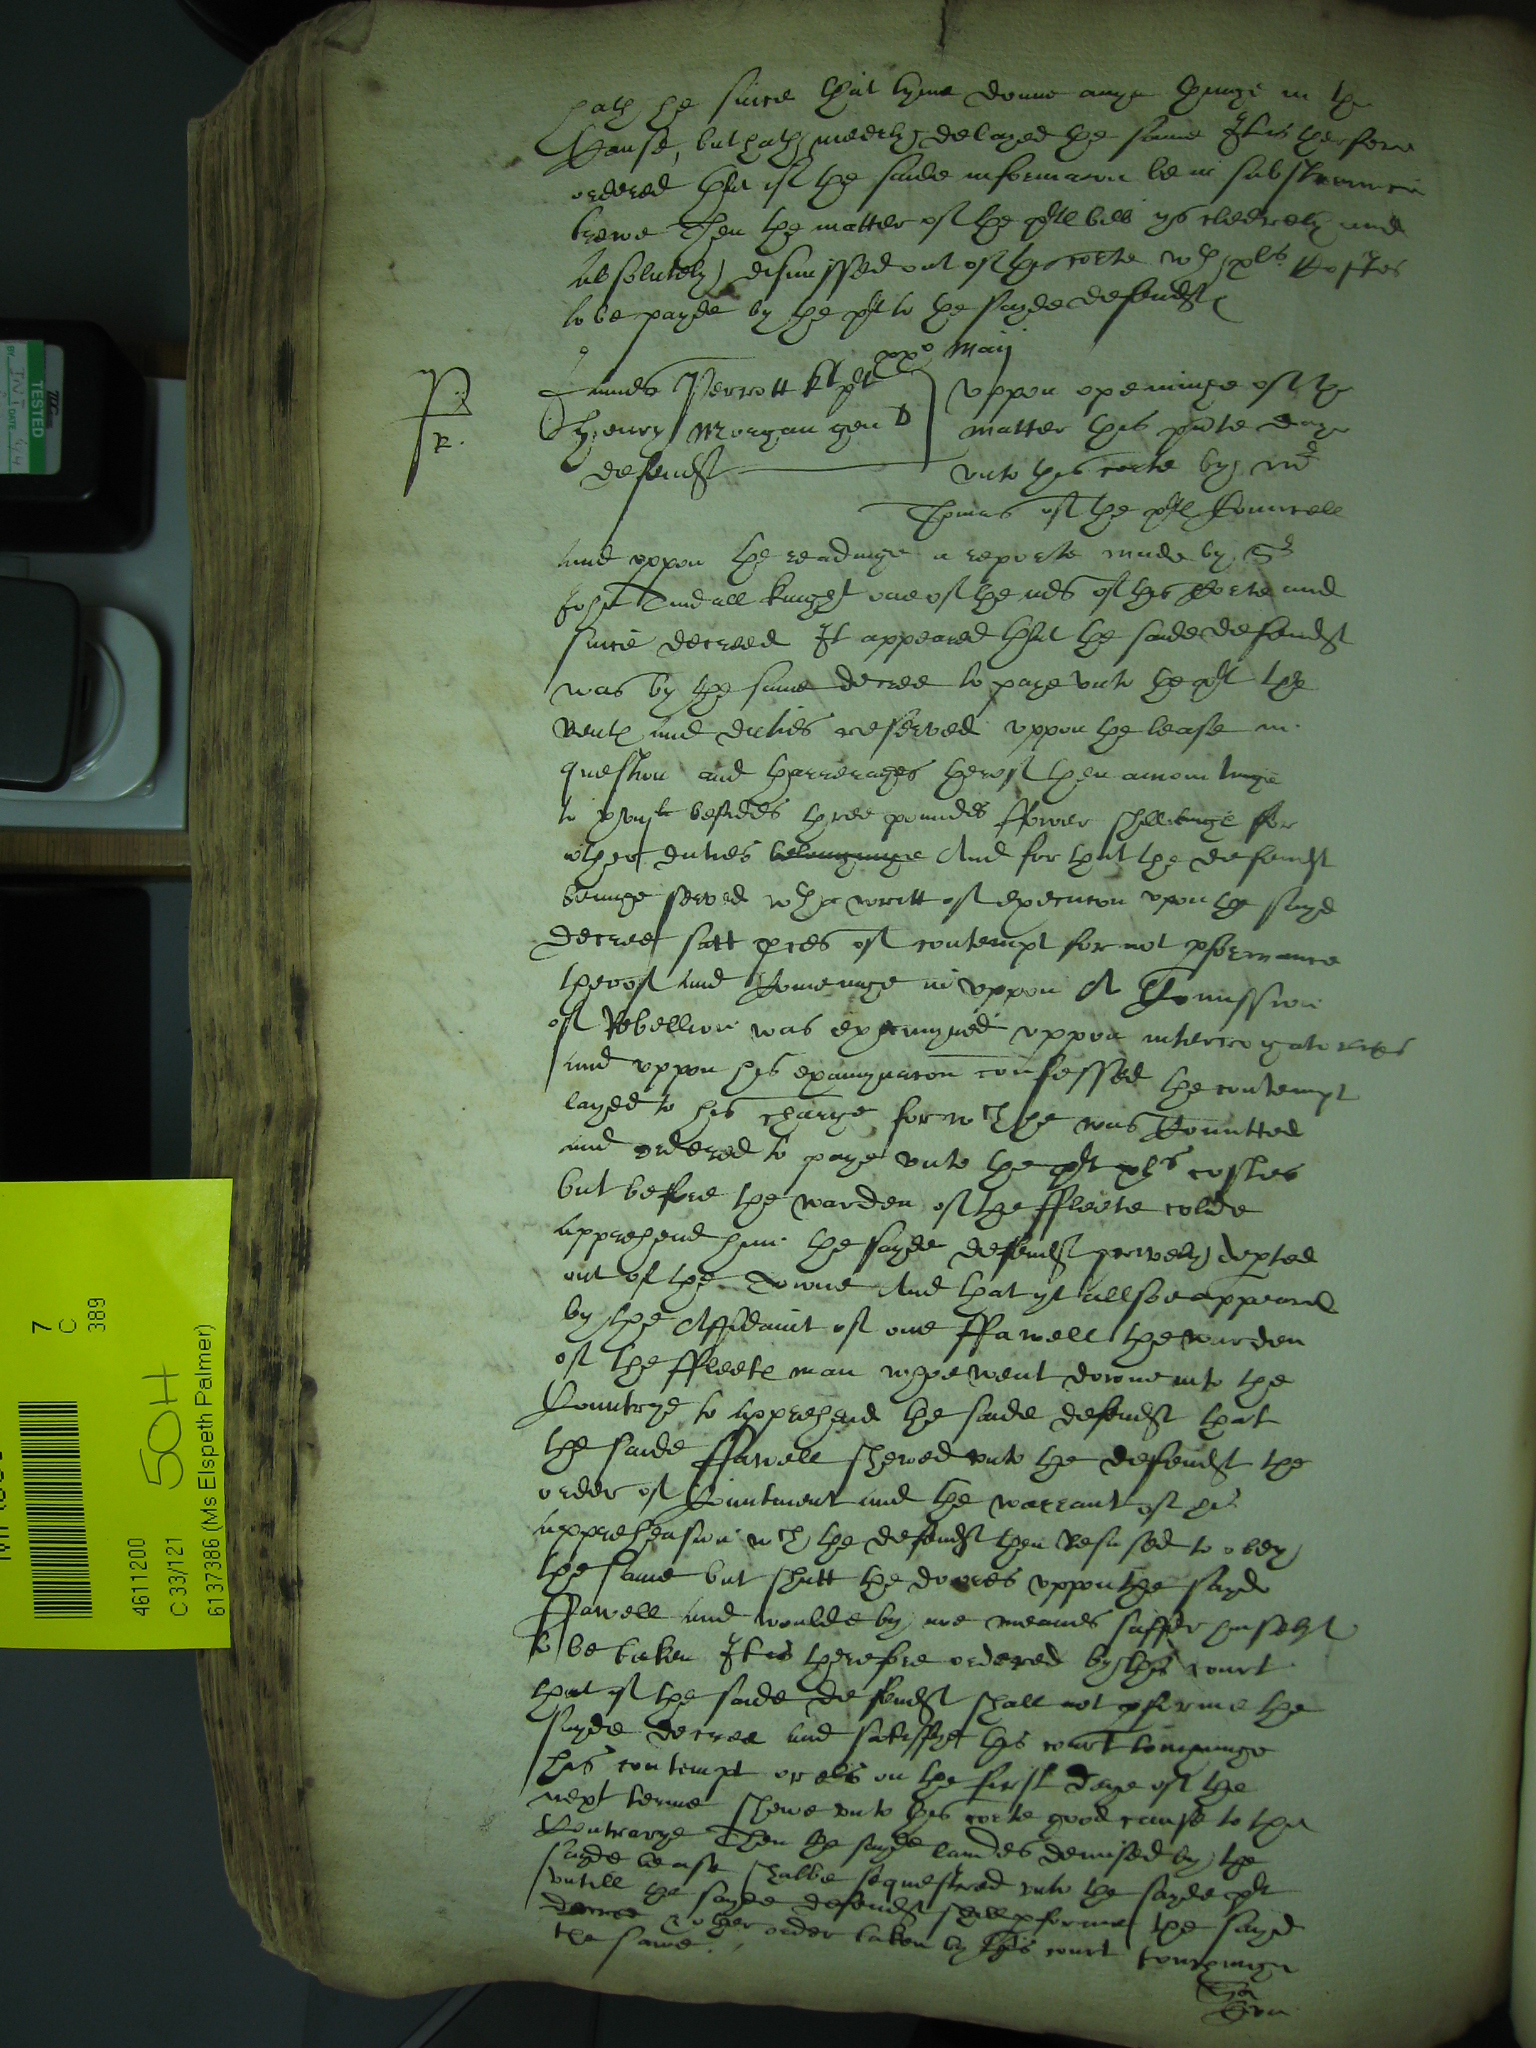 hath he since that tyme donne anye thinge in the
Cause, but hath meerely delayed the same It is therfore
ordered that if the saide informacon be in substaunce
trewe Then the matter of the plt bill ys cleerely and
absolutely dismissed out of this corte wth Costes
to be payde by the plt to the sayde defendt
Maij
James Perrott kt plt
Henry Morgan gen
defendt
Uppon openinge of the
matter this pnte daye
unto this corte by mr
Thomas of the plt Councell
and uppon the readinge a reporte made by Sr
John Tindall knight one of the mrs of this Corte and
since decreed It appeared that the saide defendt
was by the same decree to paye unto the plt the
rent and duties reserved uppon the lease in
question and tharrerages therof then amountinge
to besides three poundes fower shillinge for
other duties belonginge And for that the defendt
beinge served wth a writt of execucon upon the sayd
decree satt pces of contempt for not pformance
therof and Comeinge in uppon A Comission
of Rebellion was examyned uppon interrogatories
and uppon his examynacon confessed the contempt
layed to his charge for wch he was Comitted
and ordered to paye unto the plt costes
but before the warden of the ffleete colde
apprehend him the sayde defendt prively depted
out of the Towne And that yt allsoe appeared
by the Affidavit of one ffawell the warden
of the ffleete man whoe went downe into the
Countrye to apprehend the saide defendt that
the saide ffawell shewed unto the defendt the
order of Comitment and the warrant of his
apprehension wch the defendt then refused to obey
the same but shutt the doores uppon the sayd
ffawell and woulde by noe meanes suffer himself
to be taken It is therefore ordered by this court
that if the saide defendt shall not pforme the
sayde decree and satisffye this court touchinge
his contempt or els on the first daye of the
next terme shewe unto this corte good cause to the
Contrarye Then the sayde landes demised by the
sayde lease shalbe sequestred unto the sayde plt
untill the sayde defendt shall pforme the sayd
decree other order taken by this court touchinge
the same
TESTED
BY
DATE
7
C
389
50H
4611200
C 33/121
6137386 (Ms Elspeth Palmer)